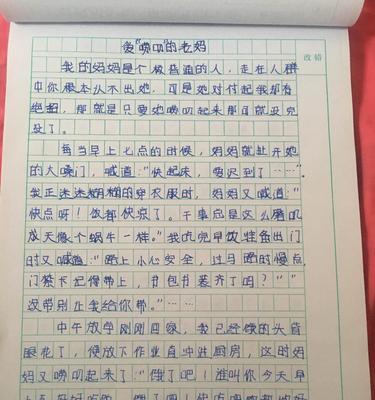 爱“唠叨”的老妈
改错
我的妈妈是个极普通的人，走在人群
中你根本认不出她，可是她对付起我却有
绝招，那就是只要她唠叨起来那可就没完
没了。
每当早上七点的时候，妈妈就扯开她
的大嗓门，喊道：“快起床，要迟到了……”
我正迷迷糊糊的穿衣服时，妈妈又喊道：“
快点呀！饭都快凉了。干事总是这么磨叽
成天像个蜗牛一样。”我吃完早饭准备出门
时又喊道：“路上小心安全，过马路时慢点
门禁卡记得带上，书包书装齐了吗？”“
没带别让我给你带。”……
中午放学刚刚回家，我已经饿的头昏
眼花了，便放下作业直冲进厨房，这时妈
妈又唠叨起来了“饿了吧！谁叫你今天早